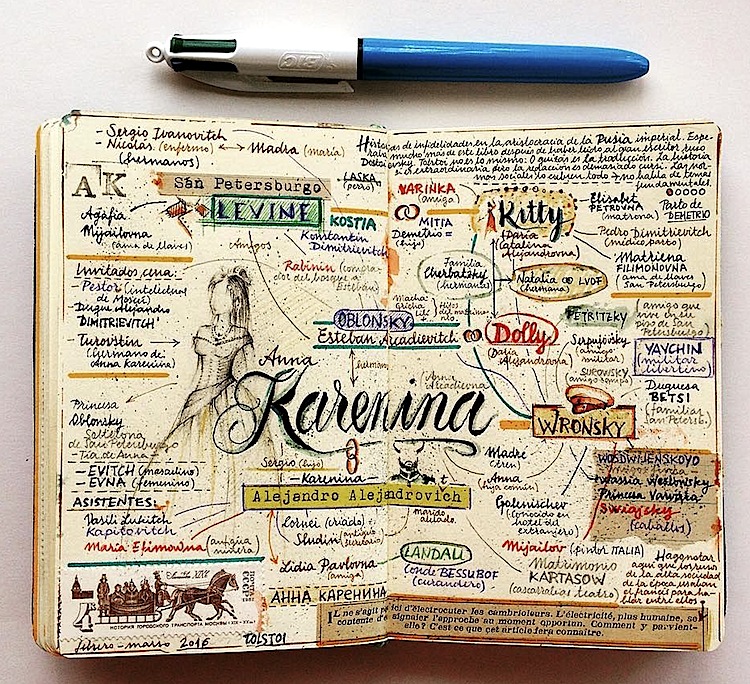 BIC
- Sergio Ivanovitch
- Nicolás (enfermo) ↔ Madra (maría)
(hermanos)
Historias de infidelidades en la aristocracia de la Rusia imperial. Espe-
raba mucho más de este libro después de leer al gran escritor ruso
Dostoievsky. Tolstoi no es lo mismo: O quizás es la traducción. La historia
es extraordinaria pero la relación es demasiado cursi. Las nor-
mas sociales lo cubren todo y no habla de temas
fundamentales.
AK
San Petersburgo
LEVINE
LASKA
(perro)
KOSTIA
Konstantin
Dimitrievitch
VARINKA
(amiga)
MITIA
Demetrio =
(hijo)
Kitty
Daria
Katalina
Alejandrovna
Elisabet
PETROVNA
(matrona)
Parto de
DEMETRIO
Pedro Dimitrievitch
(médico parto)
Agafia
Mijailovna
(ama de llaves)
Amigos
Rabinin (compra-
dor del bosque a
Esteban)
Familia
Cherbatsky
(hermanas)
Natalia ∞ LVOF
(hermana)
Matriena
FILIMONOVNA
(ama de llaves)
(San Petersburgo)
Invitados cena:
- Pestov (intelectual
de Moscú)
- Duque Alejandro
DIMITRIEVITCH
- Turovstin
(hermano de
Anna Karenina)
OBLONSKY
Esteban Arcadievitch
Dolly
(Daría
Alejandrovna)
PETRITZKY
(amigo que
vive en su
piso de San
Petersburgo)
Serpujovsky
(amigo
militar)
SUROWSKY
YAVCHIN
(militar
libertino)
Duquesa
BETSI
(familiar
San Petersb.)
Anna
Karenina
Anna
Arcadievna
WRONSKY
Princesa
Oblonsky
Solterona
de San Petersburgo
- Tía de Anna -
- EVITCH (masculino)
- EVNA (femenino)
ASISTENTES:
Vasili Lukitch
Kapitovitch
Maria Efimowna (antigua
niñera)
Sergio (hijo)
- Karenina
Alejandro Alejandrovich
marido
Madre
(tren)
Anna
(hija común)
Golenischev
(conocido en
hotel del
extranjero)
WOSDWIJENSKOYO
Wassia Weslowsky
Princesa Varvara
Swiajsky
(caballos)
Lornei (criado)
Sludin (antiguo
secretario)
Lidia Pavlovna
(amiga)
LANDAU
Conde BESSUBOF
(curandero)
Mijailov (pintor ITALIA)
Matrimonio
KARTASOW
(cascarrabias teatro)
Hago notar
aquí que los rusos
de la alta sociedad
de la época usaban
el francés para ha-
blar entre ellos
АННА КАРЕНИНА
ПОЧТА
СССР
ИСТОРИЯ ГОРОДСКОГО ТРАНСПОРТА МОСКВЫ • XIX-XX вв
febrero - marzo 2016
TOLSTOI
IL ne s'agit pas ici d'électrocuter les cambrioleurs. L'électricité, plus humaine, se
contente de signaler l'approche au moment opportun. Comment y parvient-
elle? C'est ce que cet article fera connaître.